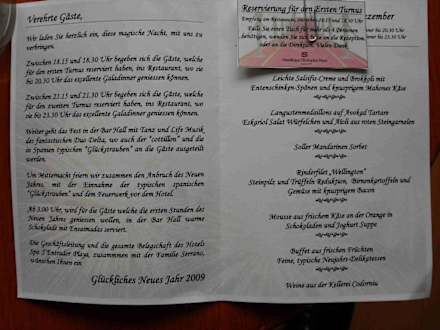 Verehrte Gäste,
Wir laden Sie herzlich ein, diese magische Nacht, mit uns zu
verbringen.
Zwischen 18.15 und 18.30 Uhr begeben sich die Gäste, welche
für den ersten Turnus reserviert haben, ins Restaurant, wo sie
bis 20.30 Uhr das exzellente Galadinner geniessen können.
Zwischen 21.15 und 21.30 Uhr begeben sich die Gäste, welche
für den zweiten Turnus reserviert haben, ins Restaurant, wo
sie bis 23.30 Uhr das exzellente Galadinner geniessen können.
Weiter geht das Fest in der Bar Hall mit Tanz und Life Musik,
des fantastischen Duo Delta, wo auch der "cotillon" und die
in Spanien typischen "Glückstrauben" an die Gäste ausgeteilt
werden.
Um Mitternacht feiern wir zusammen den Anbruch des Neuen
Jahres, mit der Einnahme der typischen spanischen
"Glückstrauben" und dem Feuerwerk vor dem Hotel.
Ab 3.00 Uhr, wird für die Gäste welche die ersten Stunden des
Neuen Jahres geniessen wollen, in der Bar Hall warme
Schokolade mit Ensaimadas serviert.
Die Geschäftsleitung und die gesamte Belegschaft des Hotels
Spa S'Entrador Playa, zusammen mit der Familie Serrano,
wünschen Ihnen ein
Glückliches Neues Jahr 2009
Reservierung für den Ersten Turnus
Empfang am Restaurant, zwischen 18.15 und 18.30 Uhr
Falls Sie einen Tisch für mehr als 6 Personen
benötigen, wenden Sie sich bitte an die Rezeption
oder an die Direktion. Vielen Dank
zember
bis 20.30 Uhr
bis 23.30 Uhr
Leichte Salsifis-Creme und Brokkoli mit
Entenschinken-Spänen und knusprigem Mahones Käse
Langustenmedaillons auf Avokad Tartare
Eskariol Salat Würfelchen und Aioli aus roten Steingarnelen
Soller Mandarinen Sorbet
Rinderfilet „Wellington"
Steinpilz und Trüffeln Reduktion, Birnenkartoffeln und
Gemüse mit knusprigem Bacon
Mousse aus frischen Käse an der Orange in
Schokoladen und Joghurt Suppe
Buffet aus frischen Früchten
Feine, typische Neujahrs-Delikatessen
Weine aus der Kellerei Codorniu